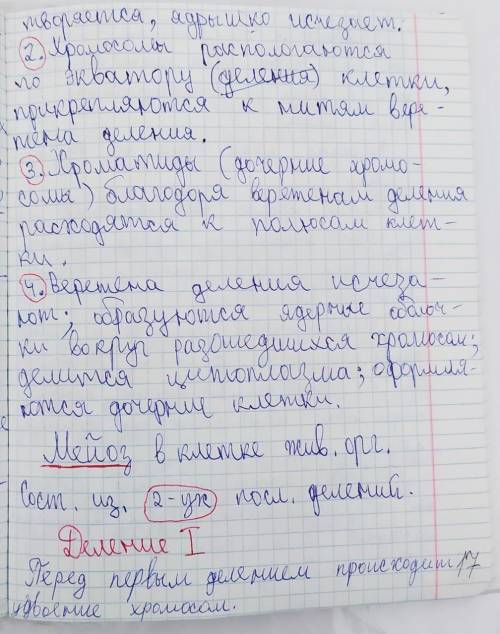 творяется, ядрышко исчезает.
2. Хромосомы распологаются
по экватору (деления) клетки,
прикрепляются к нитям вере-
тена деления.
3. Хроматиды (дочерние хромо-
сомы) благодоря веретенам деления
расходятся к полюсам клет-
ки.
4. Веретена деления исчеза-
ют; образуются ядерные оболоч-
ки вокруг разошедшихся хромосом;
делится цитоплазма; оформля-
ются дочерние клетки.
Мейоз в клетке жив. орг.
Сост. из. 2-ух посл. делений.
Деление I
Перед первым делением происходит 17
удвоение хромосом.